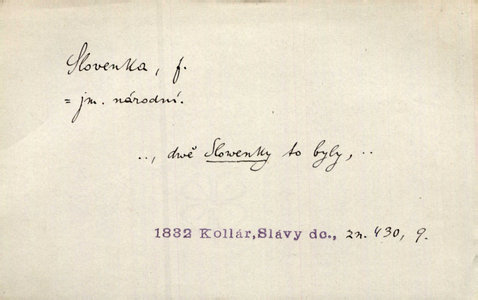 Slovenka, f.
= jm. národní.
.., dwě Slowenky to byly, ..
1832 Kollár, Slávy dc., zn. 430, 9.